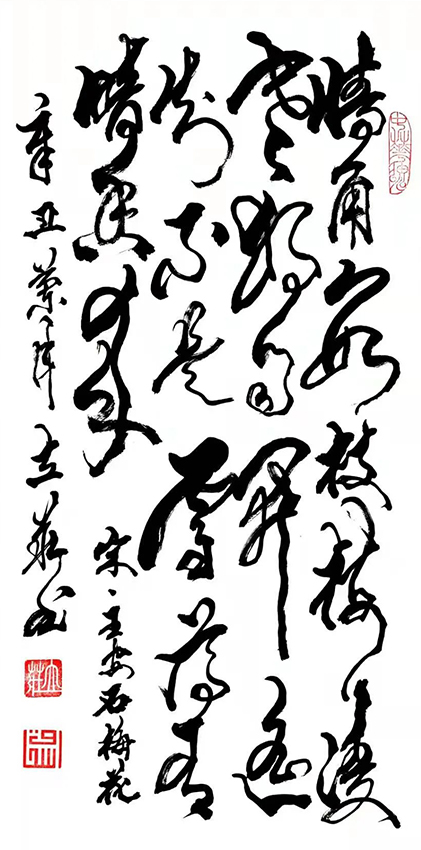 墙角數枝梅凌
寒獨自開遥
知不是雪為有
暗香来
宋、王安石梅花
辛丑